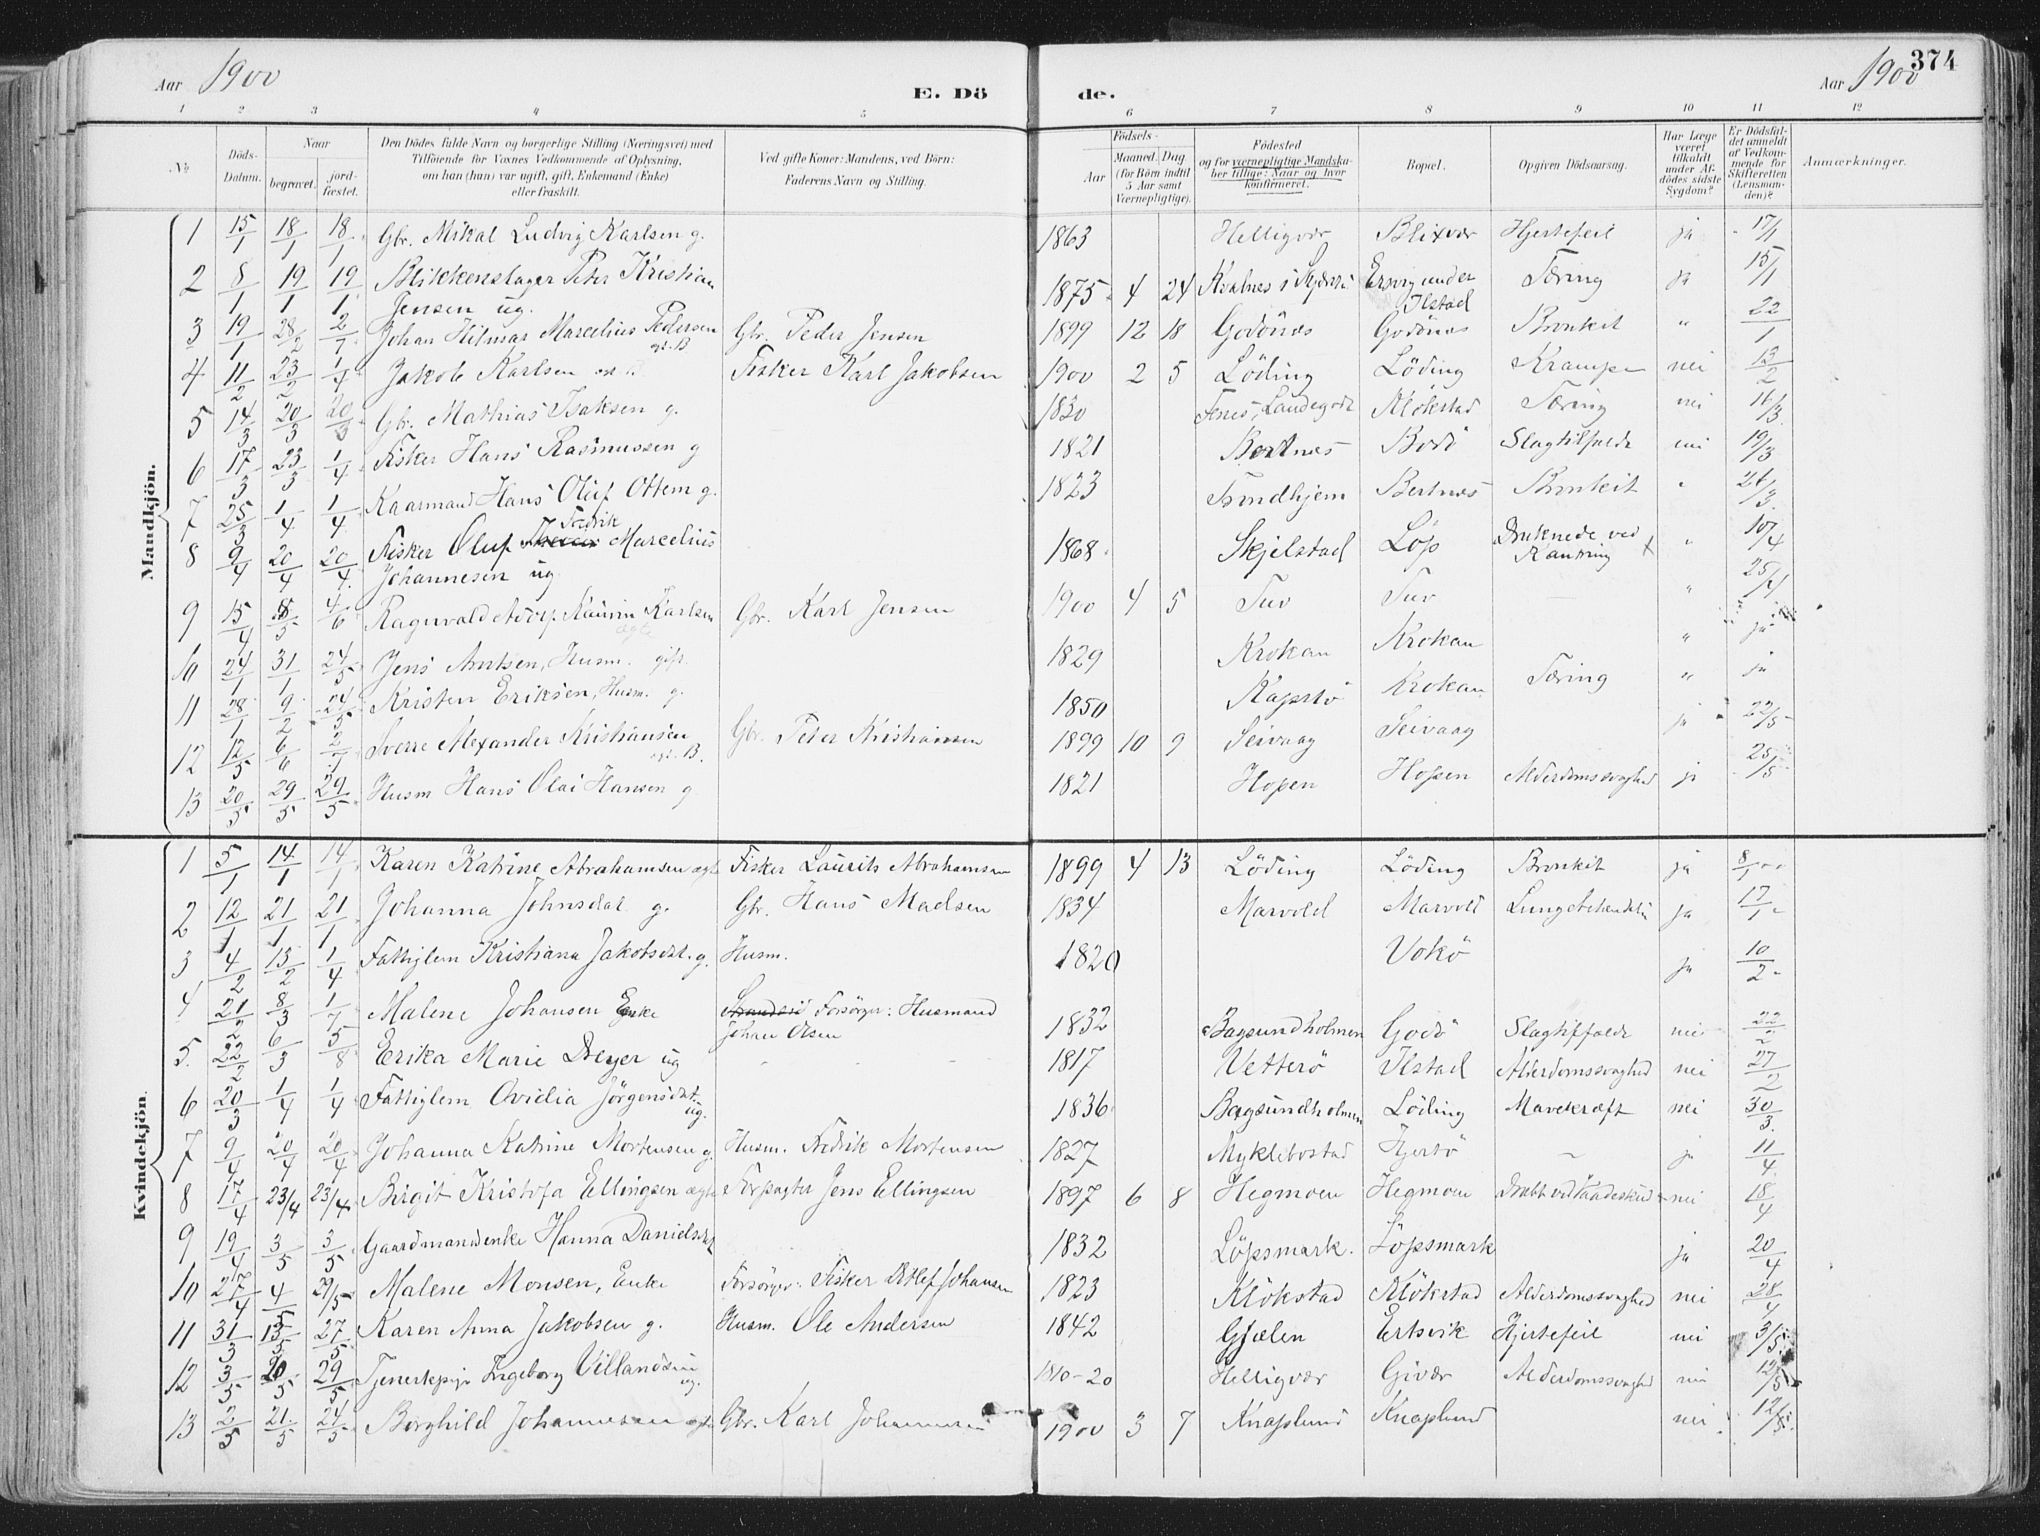 374
Aar 1900 E. Döde. Aar 1900
1 2 3 4 5 6 7 8 9 10 11 12
No Döds-Datum. Naar begravet. jordfæstet. Den Dödes fulde Navn og borgerlige Stilling (Næringsvei) med Tilföiende for Voxnes Vedkommende af Oplysning, om han (hun) var ugift, gift, Enkemand (Enke) eller fraskilt. Ved gifte Koner: Mandens, ved Börn: Faderens Navn og Stilling. Födsels- Aar Maaned. Dag. (for Börn indtil 5 Aar samt Værnepligtige). Födested og for værnepligtige Mandskaber tillige: Naar og hvor konfirmeret. Bopæl. Opgiven Dödsaarsag. Har Læge været tilkaldt under Afdödes sidste Sygdom? Er Dödsfaldet anmeldt af Vedkommende for Skifteretten (Lensmanden)? Anmærkninger.
Mandkjön.
1 15/1 18/1 18/1 Gbr. Mikal Ludvig Karlsen g. 1863 Helligvær Blixvær Hjertefeil ja 17/1
2 8/1 19/1 19/1 Blikkenslager Peter Kristian Jensen ug. 1875 4 24 Kvalnes i Skjerstad Ersvig under Ilstad Tæring ja 15/1
3 19/1 28/2 2/7 Johan Hilmar Marcelius Pedersen egt. B. Gbr. Peder Jensen 1899 12 18 Godönes Godönes Bronkit " 22/1
4 11/2 23/2 1/4 Jakob Karlsen Fisker Karl Jakobsen 1900 2 5 Löding Löding Krampe nei 13/2
5 14/3 20/3 20/3 Gbr. Mathias Isaksen g. 1830 Fenes, Landegode Klökstad Tæring nei 16/3
6 17/3 23/3 1/4 Fisker Hans Rasmussen g 1821 Bertnes Bodö Slagtilfælde nei 19/3
7 25/3 1/4 1/4 Kaarmand Hans Oluf Ottem g. 1823 Trondhjem Bertnes Bronkit " 26/3
8 9/4 20/4 20/4 Fisker Oluf Fredrik Marcelius Johannesen ug 1868 Skjelstad Löp Druknede ved Kantring " 10/4
9 15/4 5/5 4/6 Ragnvald Adolf Karlsen ægte Gbr. Karl Jensen 1900 4 5 Tuv Tuv — " 25/4
10 24/1 31/1 24/5 Jens Arntsen, Husm. gift. 1829 Krokan Krokan " ja
11 28/1 9/2 24/5 Kristen Eriksen, Husm. g. 1850 Kapstö Krokan Tæring " ja
12 12/5 6/6 2/7 Sverre Alexander Kristiansen egt. B. Gbr. Peter Kristiansen 1899 10 9 Seivaag Seivaag ja 22/5
13 20/5 29/5 29/5 Husm Hans Olai Hansen g. 1821 Hopen Hopen Alderdomssvaghed ja 25/5
Kvindekjön.
1 5/1 14/1 14/1 Karen Katrine Abrahamsen ægte Fisker Laurits Abrahamsen 1899 4 13 Löding Löding Bronkit ja 8/1 00
2 12/1 21/1 21/1 Johanna Johnsdat. g. Gbr. Hans Madsen 1834 Marvold Marvold Lungebetændelse ja 17/1
3 4/2 15/2 1/4 Fattiglem Kristiana Jakobsdat. g. Husm. 1820 Vokö ja 10/2
4 21/2 8/3 1/7 Malene Johansen Enke Forsörger: Husmand Johan Olsen 1832 Bagsundholmen Godö Slagtilfælde nei 22/2
5. 22/2 6/3 5/8 Erika Marie Dreyer ug 1817 Vetterö Ilstad Alderdomssvaghed nei 27/2
6 20/3 1/4 1/4 Fattiglem Ovidia Jörgensdat. ug. 1836 Bagsundholmen Löding Mavekræft nei 30/3
7 9/4 20/4 20/4 Johanna Katrine Mortensen g. Husm. Fredrik Mortensen 1827 Myklebostad Hjertö — ja 11/4
8 17/4 23/4 23/4 Birgit Kristofa Ellingsen ægte Forpagter Jens Ellingsen 1897 6 8 Hegmoen Hegmoen Dræbt ved Vaadeskud nei 18/4
9 19/4 3/5 3/5 Gaardmandsenke Hanna Danielsdat 1832 Löpsmark. Löpsmark ja 20/4
10 27/4 4/5 29/5 Malene Monsen, Enke Forsörger: Fisker Detlef Johansen 1823 Klökstad Klökstad Alderdomssvaghed nei 28/4
11 31/3 13/5 27/5 Karen Anna Jakobsen g. Husm. Ole Andersen 1842 Gjælen Ertsvik Hjertefeil nei 3/5
12 3/5 20/5 29/5 Tjenestepige Ingeborg Villandsen ug. 1810-20 Helligvær Givær Alderdomssvaghed nei 12/5
13 2/5 21/5 24/5 Borghild Johannesen ægte Gbr. Karl Johannesen 1900 3 7 Knaplund Knaplund nei 12/5